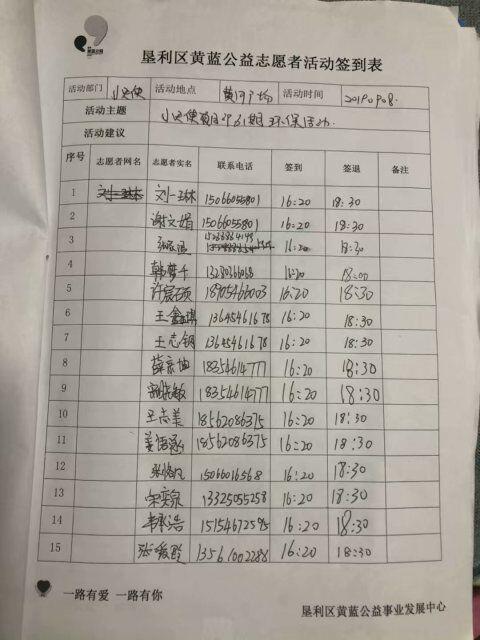 垦利区黄蓝公益志愿者活动签到表
活动部门 小天使 活动地点 黄河广场 活动时间 20190908.
活动主题 小天使项目
活动建议
序号 志愿者网名 志愿者实名 联系电话 签到 签退 备注
1 刘一琳 15066055801 16:20 18:30
2 谢文娟 15066055801 16:20 18:30
3 16:20 18:30
4 韩梦千 16:20 18:00
5 许宸硕 18905466003 16:20 18:30
6 王鑫琪 13645461678 16:20 18:30
7 王志钢 13645461678 16:20 18:30
8 薛京坤 18354614777 16:20 18:30
9 18354614777 16:20 18:30
10 王尚美 18562086375 16:20 18:30
11 姜语涵 18562086375 16:20 18:30
12 15066016568 16:20 18:30
13 宋奕泉 13325055258 16:20 18:30
14 韦承浩 15154672595 16:20 18:30
15 13561002288 16:20 18:30
一路有爱 一路有你
垦利区黄蓝公益事业发展中心